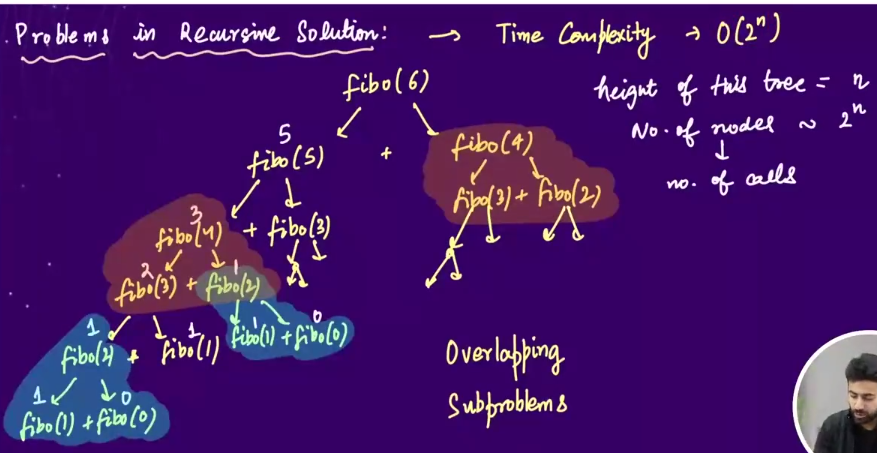 Problems in Recursive Solution: → Time Complexity → O(2ⁿ)
fibo(6)
height of this tree = n
No. of nodes ~ 2ⁿ
↓
no. of calls
5
fibo(5) + fibo(4)
fibo(3) + fibo(2)
3
fibo(4) + fibo(3)
2 1
fibo(3) + fibo(2)
1 1 1 0
fibo(2) + fibo(1) fibo(1) + fibo(0)
1 0
fibo(1) + fibo(0)
Overlapping
Subproblems